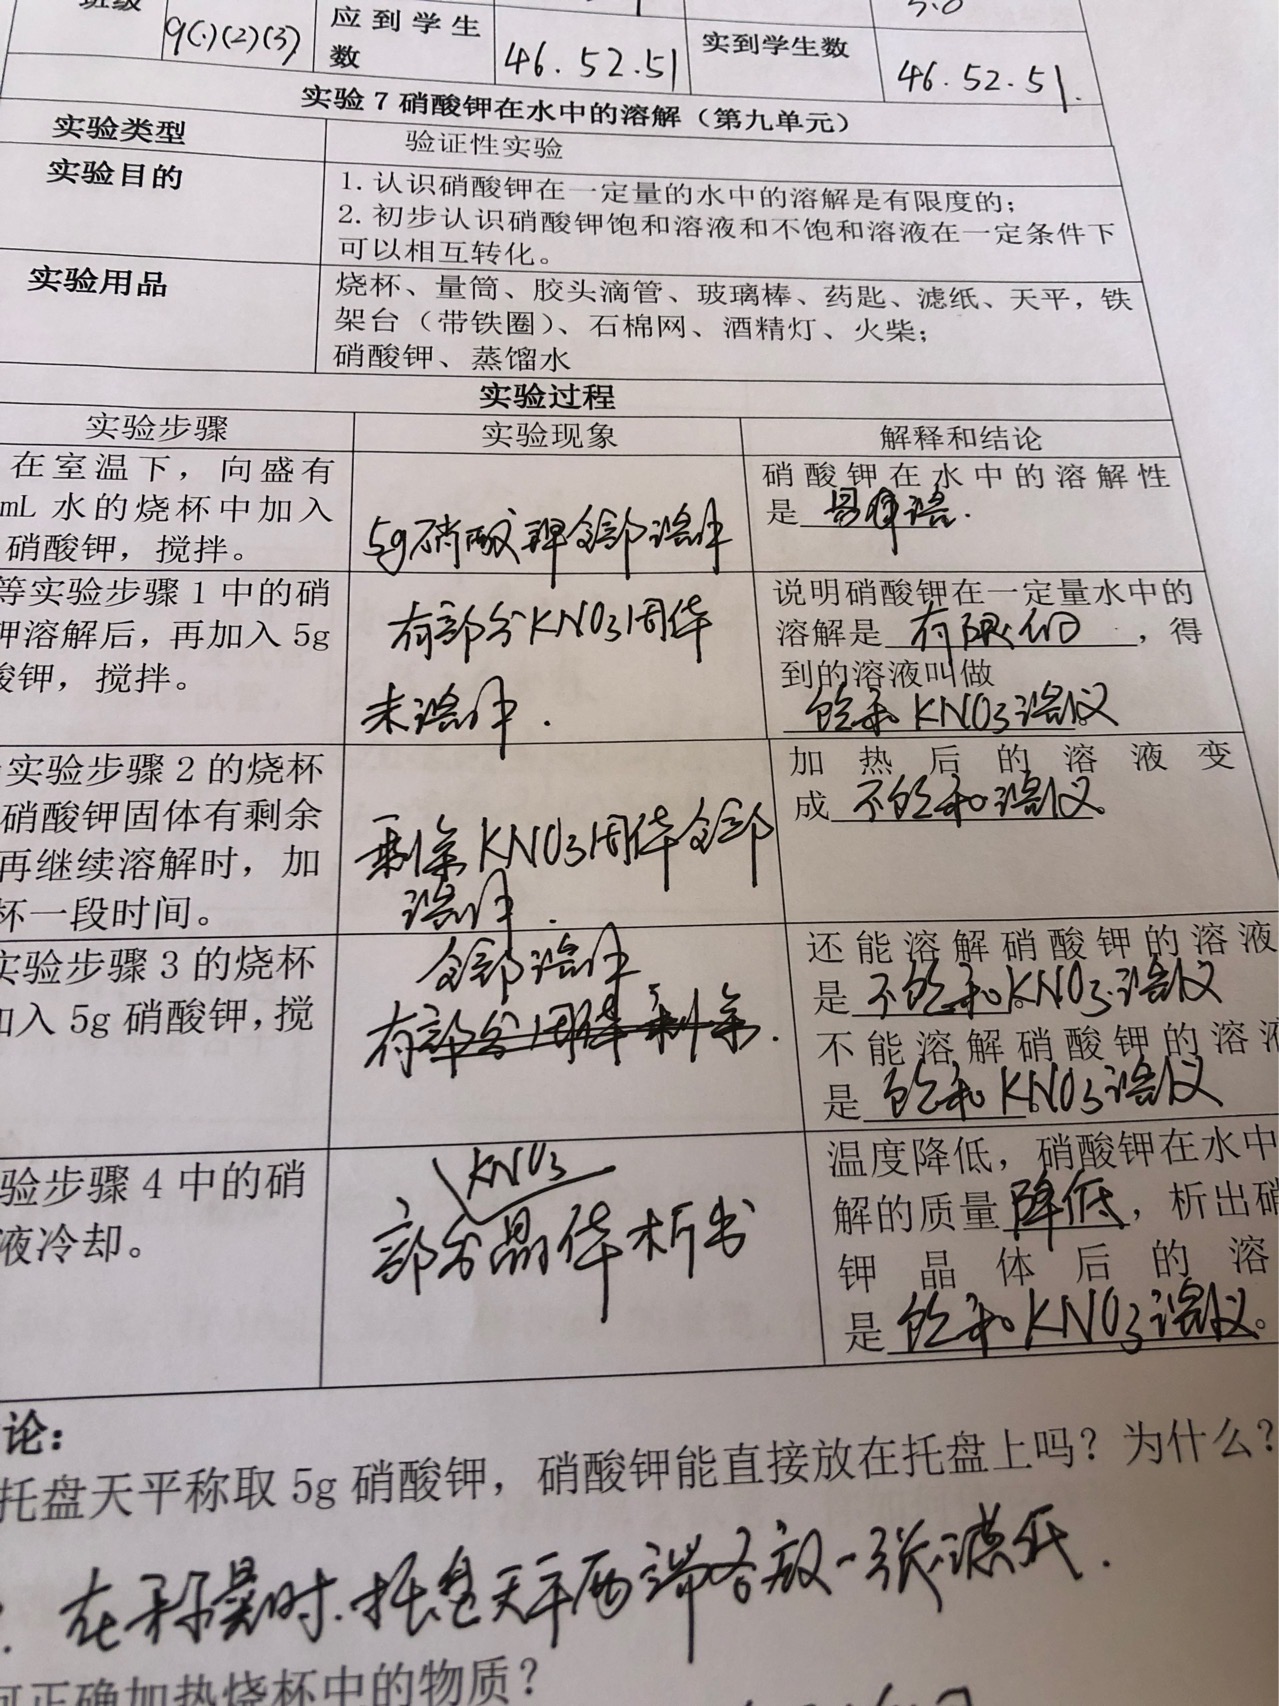 班级 9(1)(2)(3) 应到学生数 46.52.51 实到学生数 46.52.51.
实验 7 硝酸钾在水中的溶解（第九单元）
实验类型 验证性实验
实验目的
1. 认识硝酸钾在一定量的水中的溶解是有限度的；
2. 初步认识硝酸钾饱和溶液和不饱和溶液在一定条件下
可以相互转化。
实验用品
烧杯、量筒、胶头滴管、玻璃棒、药匙、滤纸、天平，铁
架台（带铁圈）、石棉网、酒精灯、火柴；
硝酸钾、蒸馏水
实验过程
实验步骤 实验现象 解释和结论
在室温下，向盛有
mL 水的烧杯中加入
硝酸钾，搅拌。
5g硝酸钾全部溶解
硝酸钾在水中的溶解性
是 易溶.
等实验步骤 1 中的硝
钾溶解后，再加入 5g
酸钾，搅拌。
有部分KNO3固体
未溶解.
说明硝酸钾在一定量水中的
溶解是 有限的，得
到的溶液叫做
饱和KNO3溶液。
实验步骤 2 的烧杯
硝酸钾固体有剩余
再继续溶解时，加
杯一段时间。
剩余KNO3固体全部
溶解.
加热后的溶液变
成 不饱和溶液。
实验步骤 3 的烧杯
加入 5g 硝酸钾，搅
全部溶解
有部分固体剩余.
还能溶解硝酸钾的溶液
是 不饱和KNO3溶液
不能溶解硝酸钾的溶液
是 饱和KNO3溶液
验步骤 4 中的硝
液冷却。
KNO3
部分晶体析出
温度降低，硝酸钾在水中
解的质量 降低，析出硝
钾晶体后的溶
是 饱和KNO3溶液。
论：
托盘天平称取 5g 硝酸钾，硝酸钾能直接放在托盘上吗？为什么？
在称量时.托盘天平两端各放一张滤纸.
何正确加热烧杯中的物质？